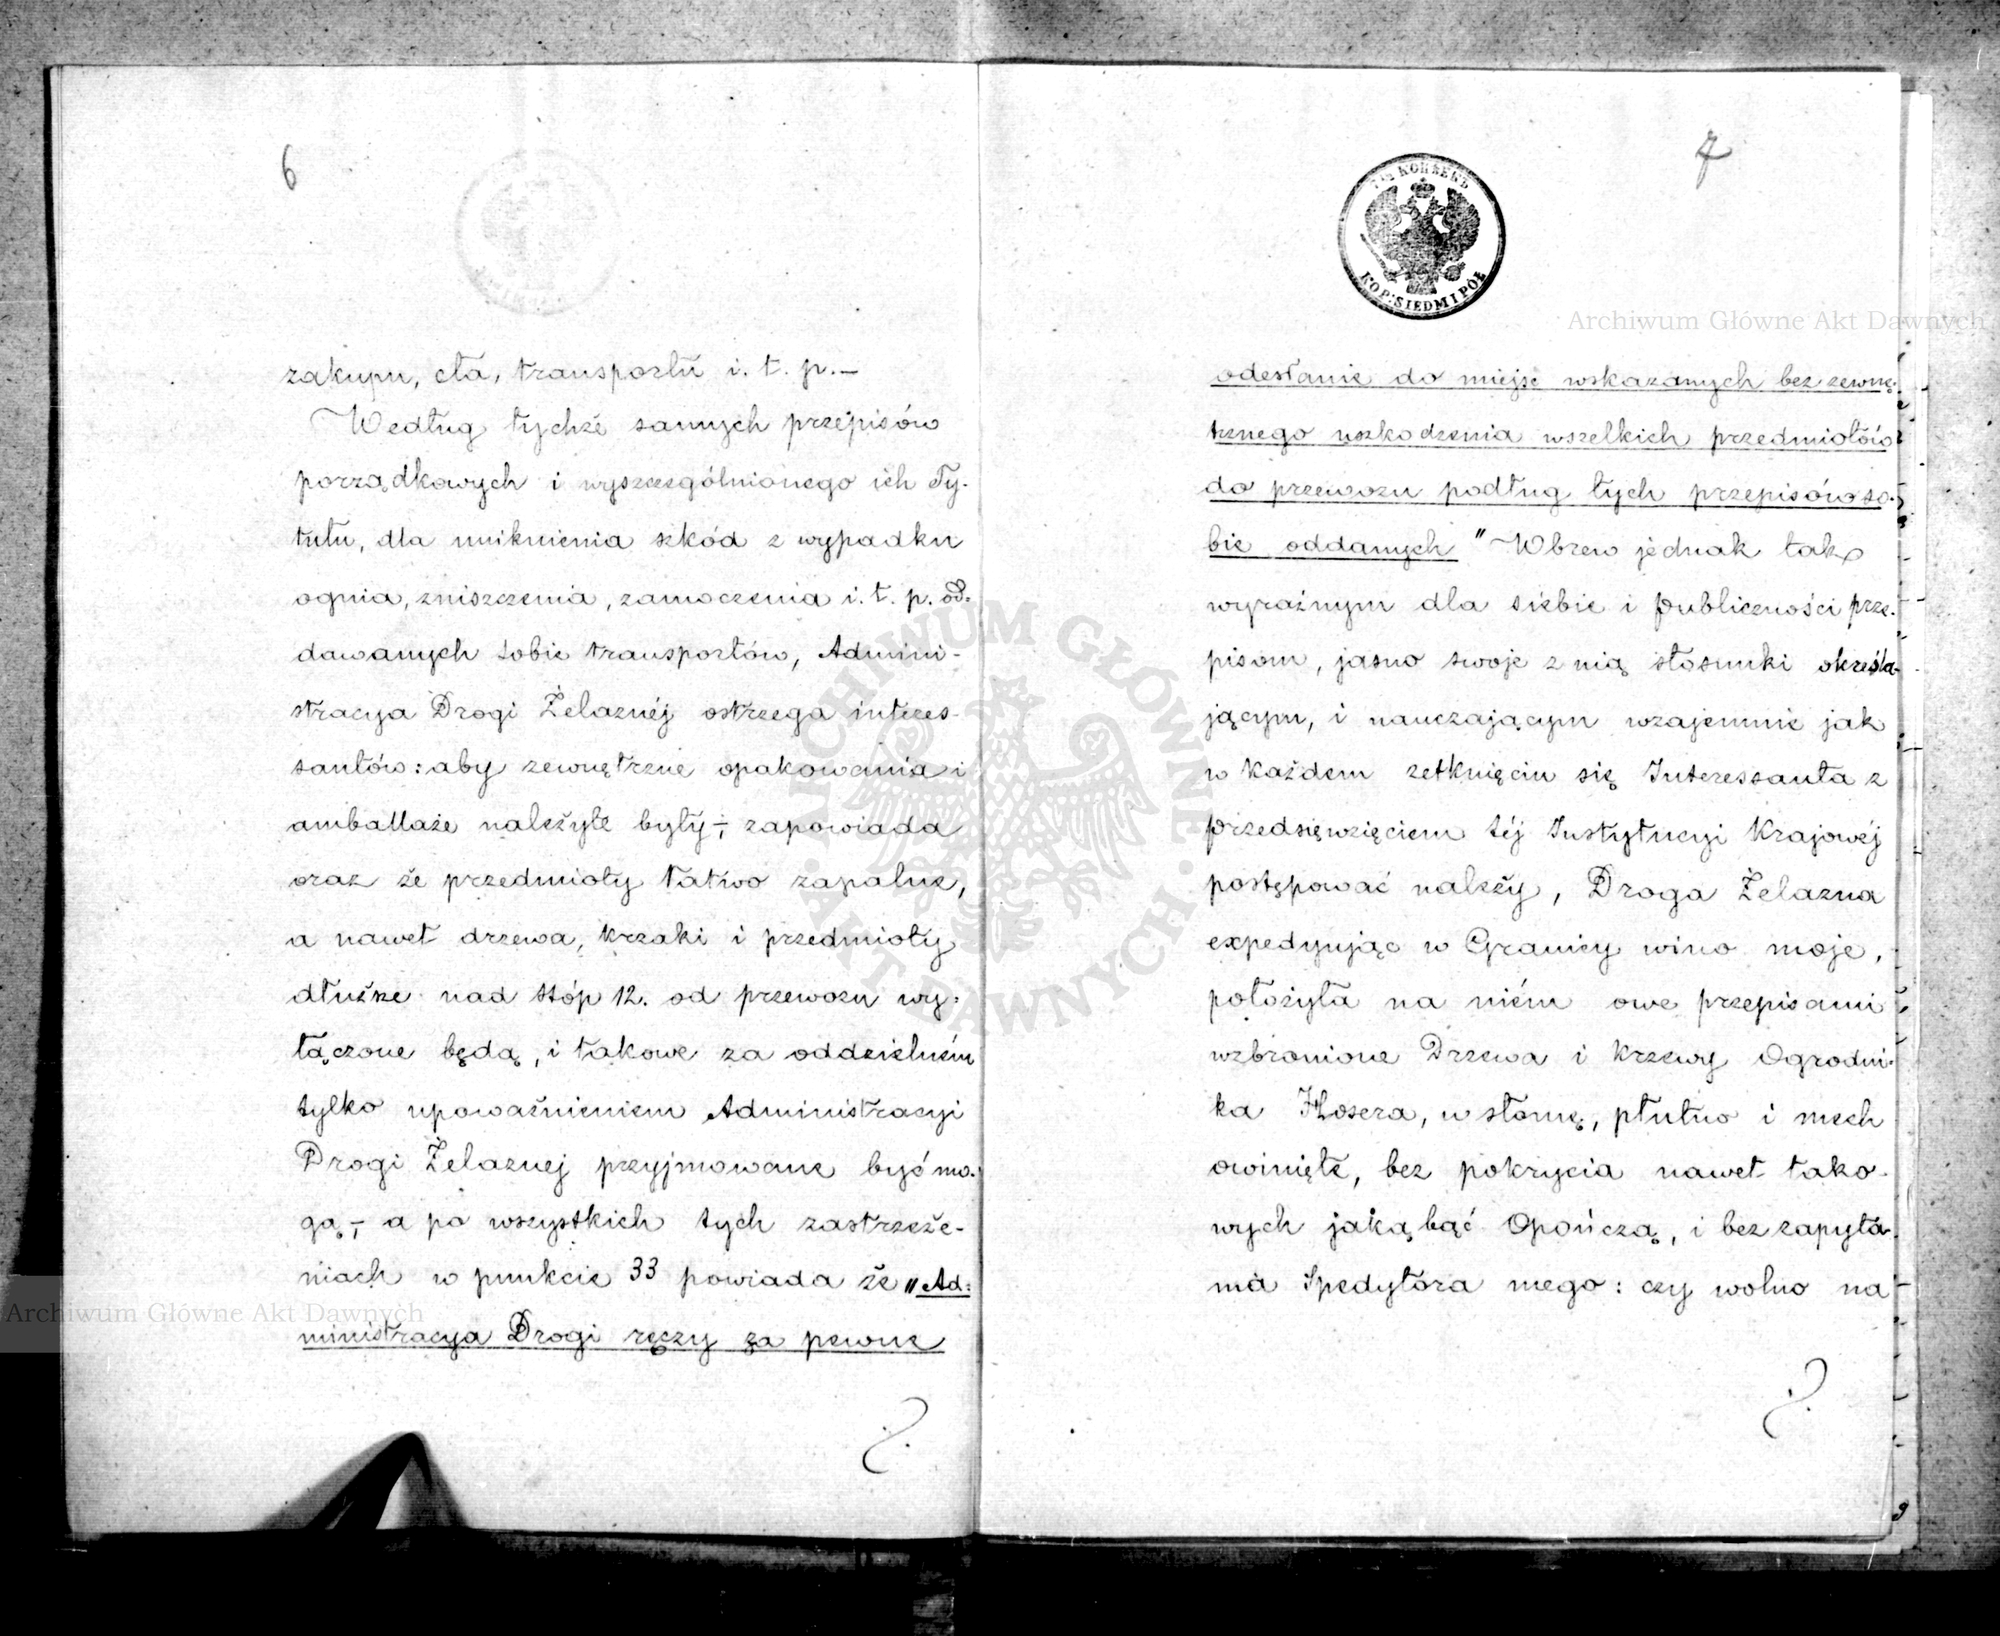 6
zakupu, cła, transportu i. t. p.—
Według tychże samych przepisów
porządkowych i wyszczególnionego ich Ty-
tułu, dla uniknienia szkód z wypadku
ognia, zniszczenia, zamoczenia i. t. p. od-
dawanych sobie transportów, Admini-
stracya Drogi Żelaznéj ostrzega interes-
santów: aby zewnętrzne opakowania i
amballaże należyte były;— zapowiada
oraz że przedmioty łatwo zapalne,
a nawet drzewa, krzaki i przedmioty
dłuższe nad stóp 12. od przewozu wy-
łączone będą, i takowe za oddzielném
tylko upoważnieniem Administracyi
Drogi Żelaznej przyjmowane być mo-
gą,— a po wszystkich tych zastrzeże-
niach w punkcie 33 powiada że „Ad-
ministracya Drogi ręczy za pewne
7
KOP: SIEDM I PÓŁ
odesłanie do miejsc wskazanych bez zewnę-
trznego uszkodzenia wszelkich przedmiotów
do przewozu podług tych przepisów so-
bie oddanych" Wbrew jednak tak
wyraźnym dla siebie i publiczności prze-
pisom, jasno swoje z nią stosunki określa-
jącym, i nauczającym wzajemnie jak
w każdem zetknięciu się Interessanta z
przedsięwzięciem téj Instytucyi Krajowéj
postępować należy, Droga Żelazna
expedyując w Granicy wino moje,
położyła na niém owe przepisami
wzbronione Drzewa i krzewy Ogrodni-
ka Hosera, w słomę, płutno i mech
owinięte, bez pokrycia nawet tako-
wych jaką bąć Opończą, i bez zapyta-
nia Spedytora mego: czy wolno na
Archiwum Główne Akt Dawnych
Archiwum Główne Akt Dawnych
ARCHIWUM GŁÓWNE AKT DAWNYCH